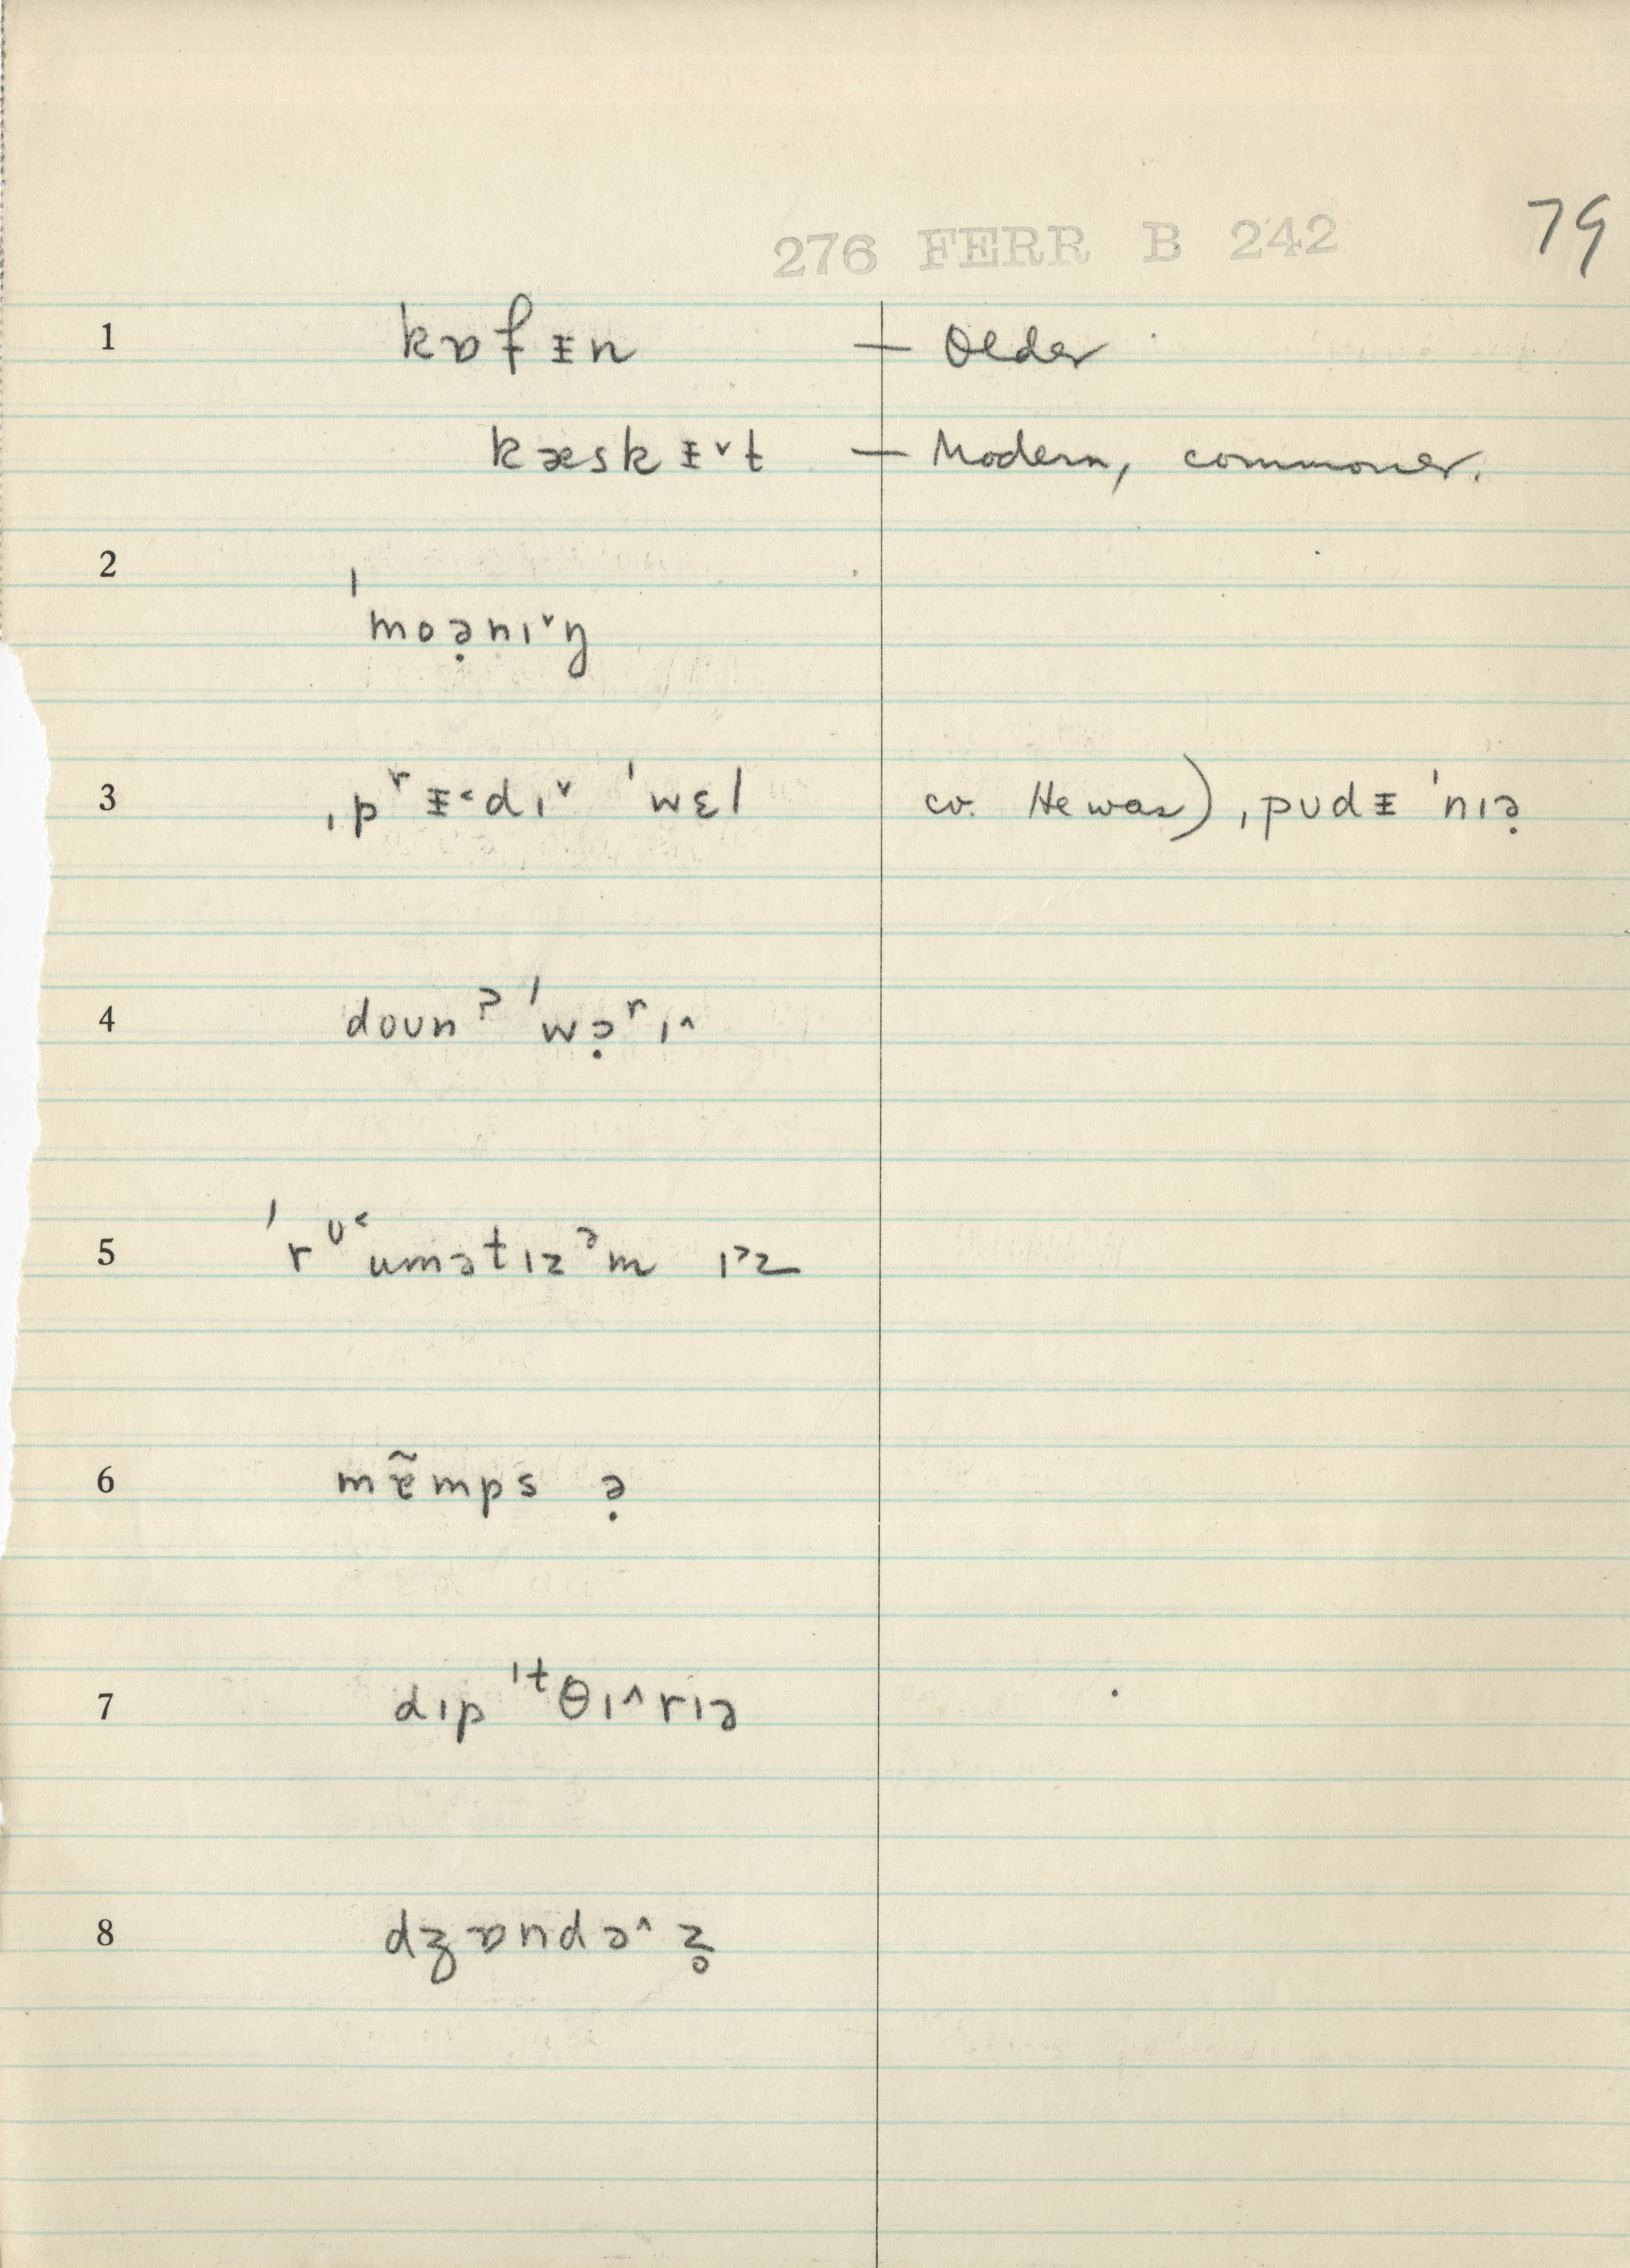 79
276 FERR B 242
1 kɒfɪ̵n — Older
kæskɪ̵˅t — Modern, commoner.
2 ˈmoə̣nɪ˅ŋ
3 ˌpʳɪ̵˂dɪ˅ ˈwɛl cv. He was) ˌpʊdɪ̵ ˈnɪə̣
4 doʊnˀ ˈwə̣ʳɪ˄
5 ˈrᶷ˂umətɪzᵊm ɪ˃z
6 mɐ̃mps ə̣
7 dɪpˈᵗθɪ˄rɪə
8 dʒɒndə˄z̥